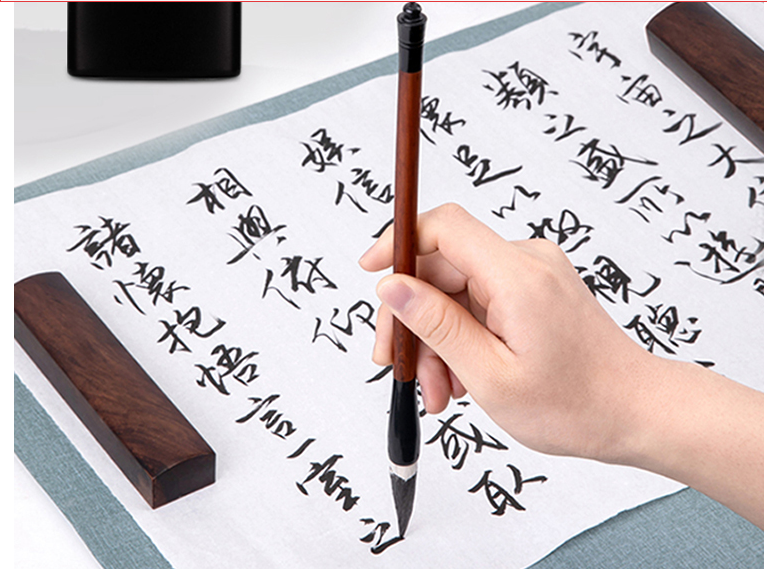 宇宙之大
類之盛所以遊
懷足以極視聽
娛信
相與俯仰一或取
諸懷抱悟言一室之